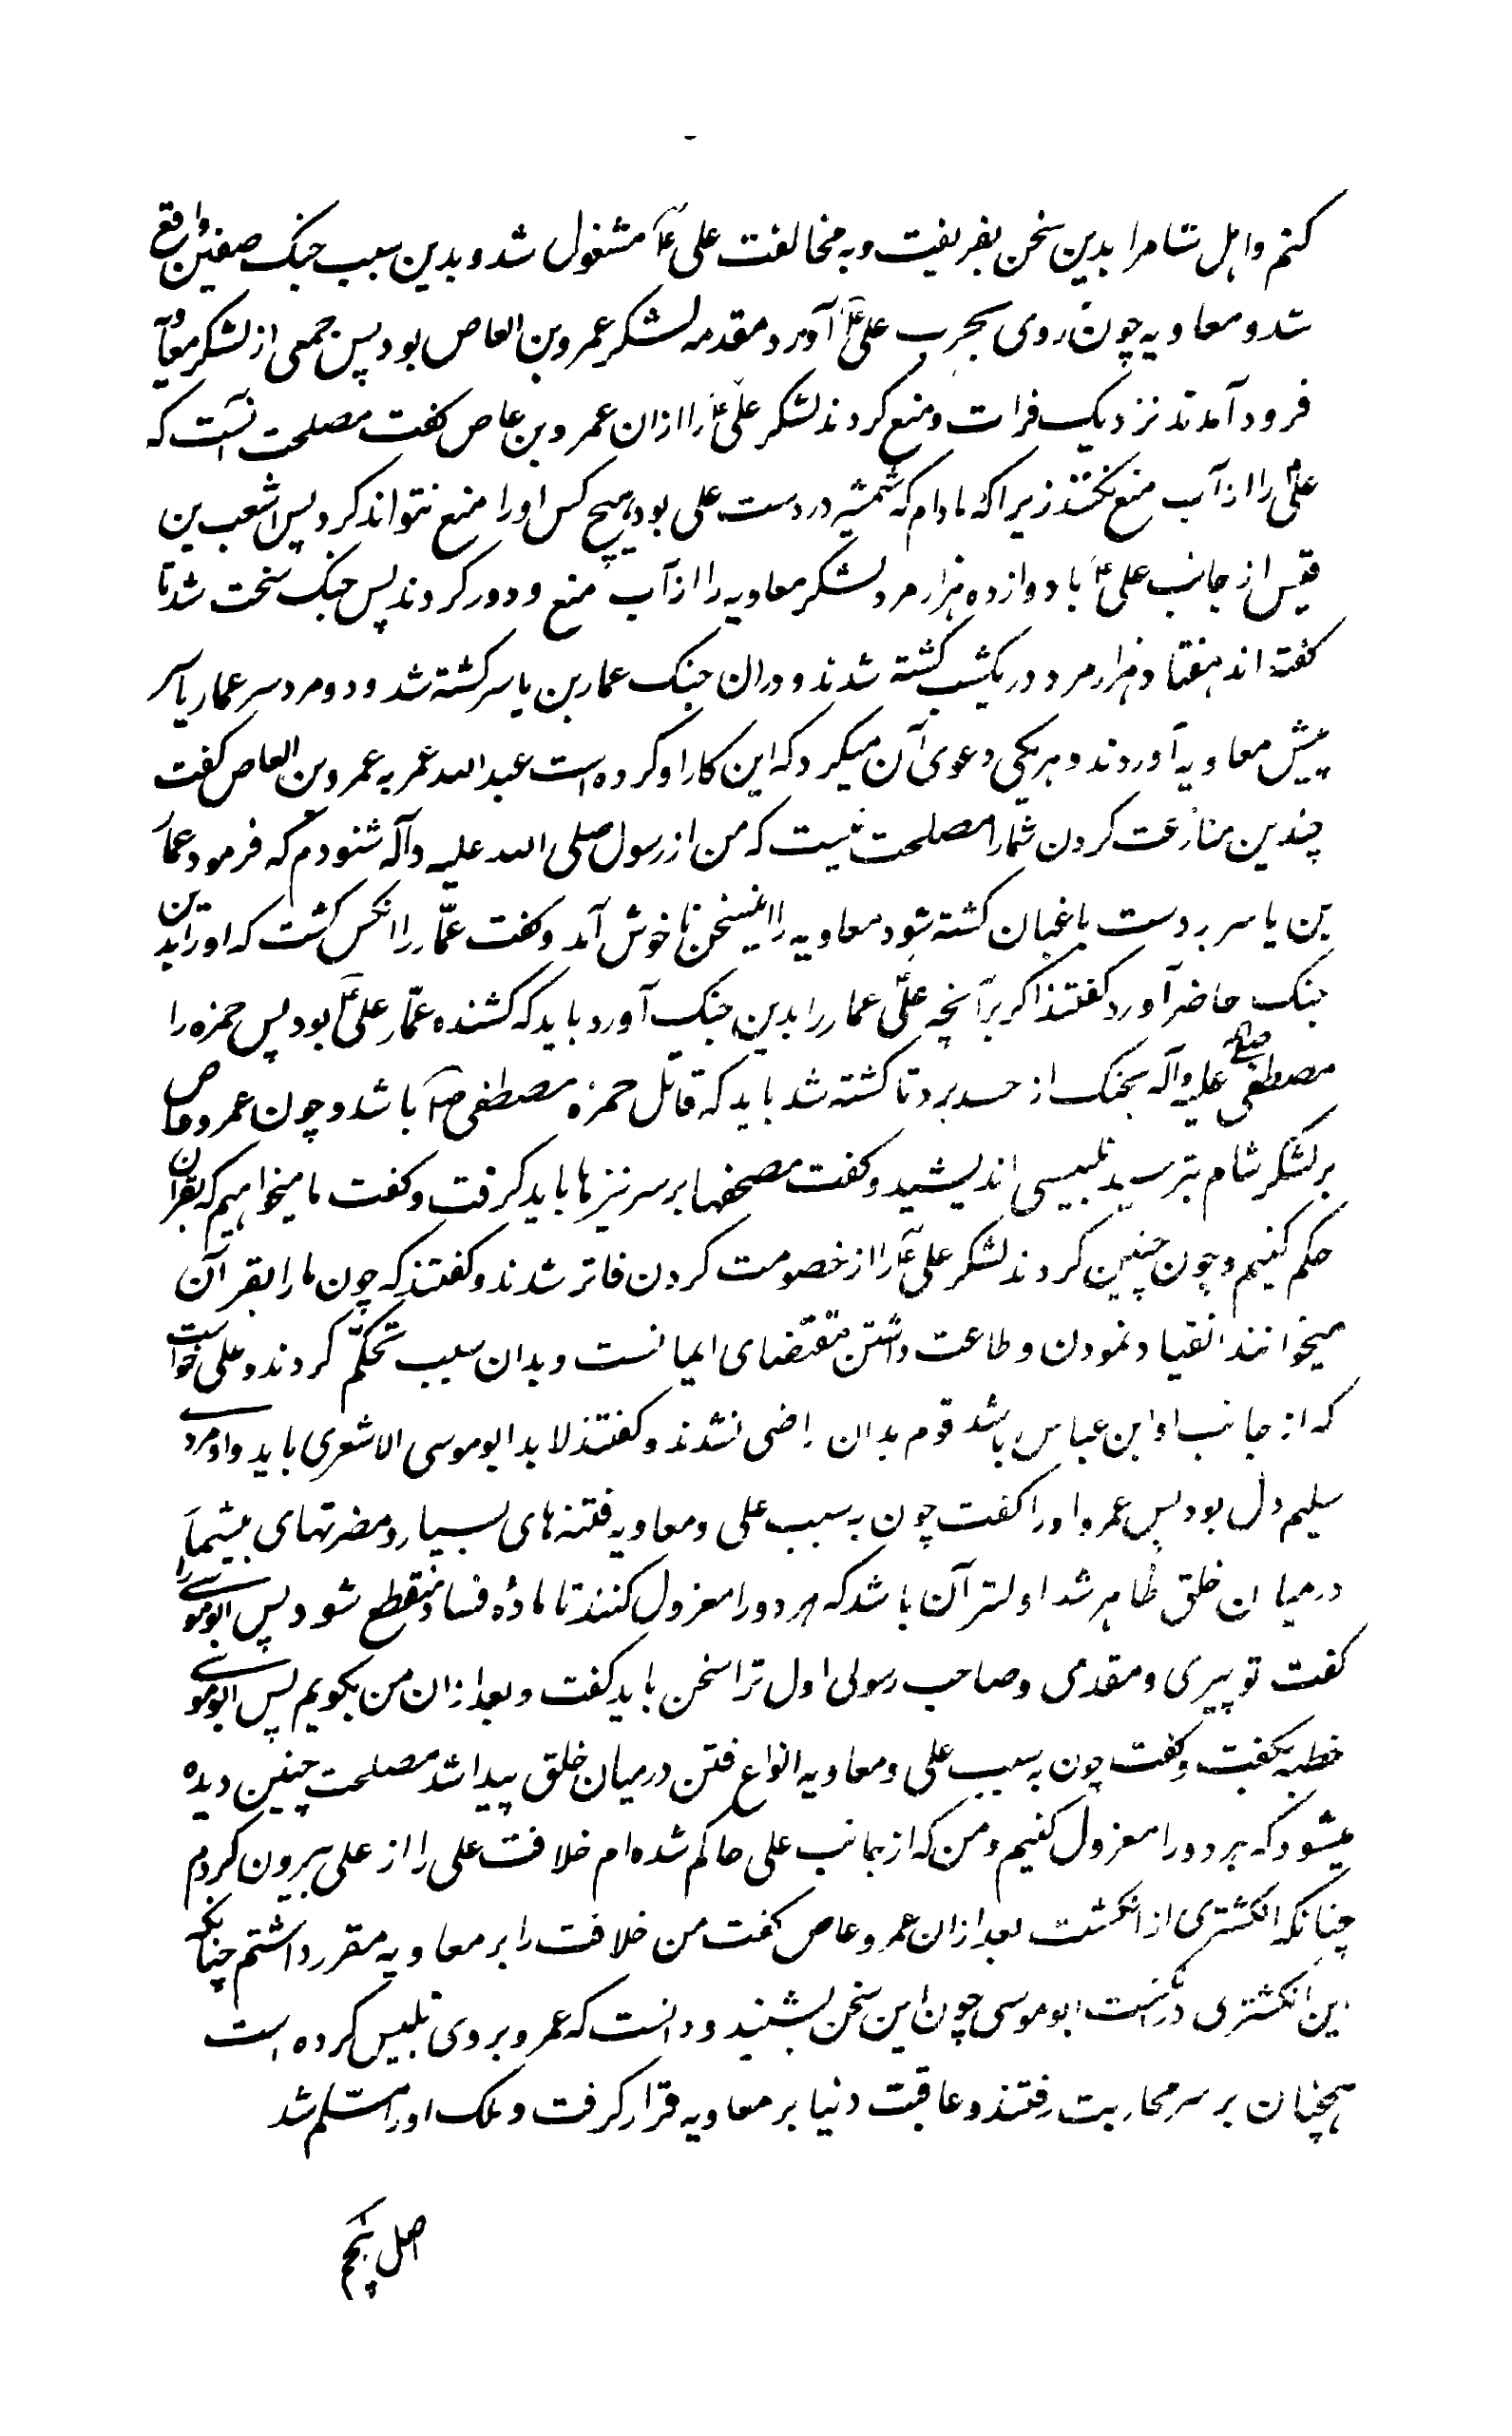 کنم واهل شامرا بدین سخن بفریفت وبه مخالفت علی ع مشغول شد وبدین سبب جنک صفین واقع
شد ومعاویه چون روی بحرب علی ع آورد مقدمه لشکر عمرو بن العاص بود پس جمعی از لشکر معاویه
فرود آمدند نزدیک فرات ومنع کردند لشکر علی ع را ازان عمرو بن عاص کفت مصلحت نیست که
علی را از آب منع نکنند زیرا که مادام که شمشیر در دست علی بود هیچ کس اورا منع نتواند کرد پس اشعب بن
قیس از جانب علی ع با دوازده هزار مرد لشکر معاویه را از آب منع ودور کردند پس جنک سخت شد تا
کفته اند هفتاد هزار مرد در یکشب کشته شدند ودران جنک عمار بن یاسر کشته شد ودو مرد سر عمار یاسر
پیش معاویه آوردند وهر یکی دعوی آن میکرد که این کار او کرده است عبدالله عمر به عمرو بن العاص کفت
چندین منازعت کردن شمارا مصلحت نیست که من از رسول صلی الله علیه وآله شنودم که فرمود عمار
بن یاسر بر دست باغیان کشته شود معاویه را اینسخن ناخوش آمد وکفت عمّار را انکس کشت که اورا بدین
جنک حاضر آورد کفتند اکر برآنچه علی عمار را بدین جنک آورد باید که کشنده عمّار علی ع بود پس حمزه را
مصطفی صلی الله علیه وآله بجنک احد برد تا کشته شد باید که قاتل حمزه مصطفی ص باشد وچون عمرو عاص
بر لشکر شام بترسید تلبیسی اندیشید وکفت مصحفها بر سر نیزها باید کرفت وکفت ما میخواهیم که بقرآن
حکم کنیم وچون چنین کردند لشکر علی ع را از خصومت کردن فاتر شدند وکفتند که چون ما را بقرآن
میخوانند انقیاد نمودن وطاعت داشتن مقتضای ایمانست وبدان سبب تحکّم کردند وعلی خواست
که از جانب او ابن عباس باشد قوم بدان راضی نشدند وکفتند لابد ابو موسی الاشعری باید واو مردی
سلیم دل بود پس عمرو اورا کفت چون به سبب علی ومعاویه فتنه‌های بسیار ومضرتهای بیشمار
درمیان خلق ظاهر شد اولتر آن باشد که هر دو را معزول کنند تا مادّه فساد منقطع شود پس ابو موسی را
کفت تو پیری ومقدمی وصاحب رسولی اول ترا سخن باید کفت وبعد ازان من بکویم پس ابو موسی
خطبه بکفت وکفت چون به سبب علی ومعاویه انواع فتن درمیان خلق پیدا شد مصلحت چنین دیده
میشود که هر دو را معزول کنیم ومن که از جانب علی حاکم شده ام خلافت علی را از علی بیرون کردم
چنانکه انکشتری از انکشت بعد ازان عمرو عاص کفت من خلافت را بر معاویه مقرر داشتم چنانکه
این انکشتری در انکشت ابو موسی چون این سخن بشنید ودانست که عمرو بر وی تلبیس کرده است
همچنان بر سر محاربت رفتند وعاقبت دنیا بر معاویه قرار کرفت وملک اورا مسلّم شد
اصل پنجم